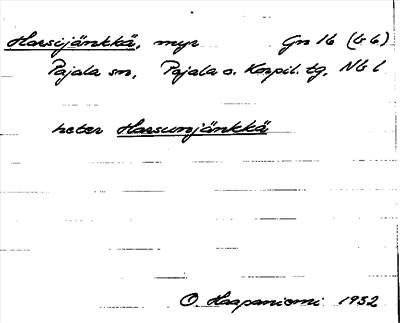 Harsijänkkä, myr Gn 16 (G6)
Pajala sn, Pajala o. Korpil. tg, Nb l
heter Harsunjänkkä
O. Haapaniemi 1932